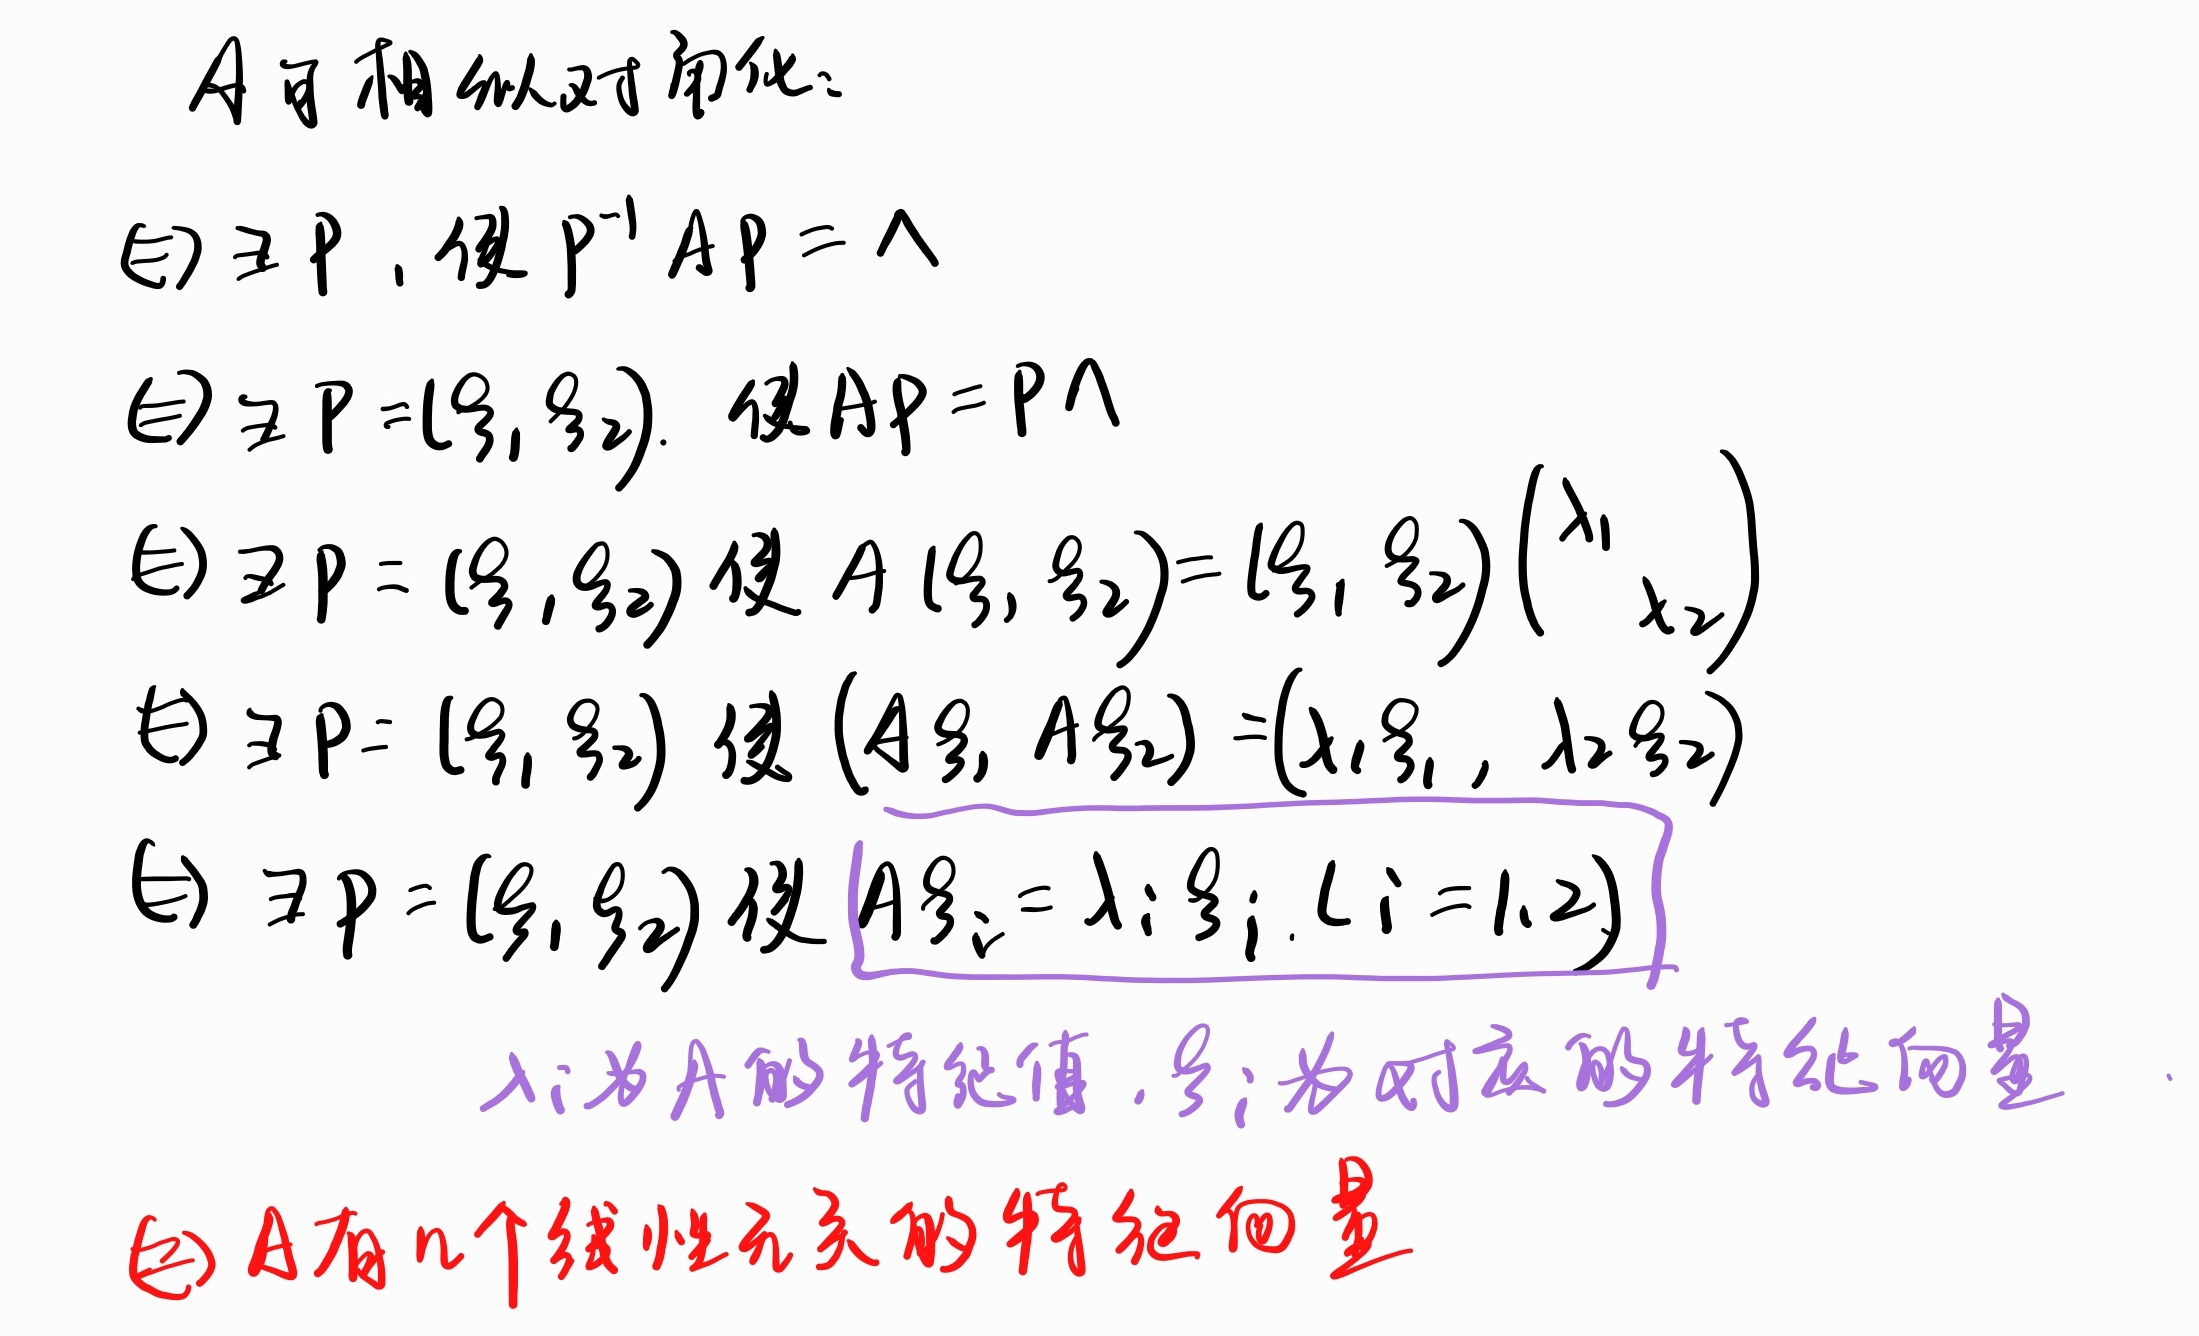 A可相似对角化:
⇔ ∃ P, 使 P⁻¹AP = Λ
⇔ ∃ P = (ξ₁ ξ₂). 使 AP = PΛ
⇔ ∃ P = (ξ₁, ξ₂) 使 A(ξ₁, ξ₂) = (ξ₁, ξ₂) (λ₁ λ₂)
⇔ ∃ P = (ξ₁ ξ₂) 使 (Aξ₁ Aξ₂) = (λ₁ξ₁, λ₂ξ₂)
⇔ ∃ P = (ξ₁, ξ₂) 使 Aξᵢ = λᵢξᵢ. (i = 1, 2)
λᵢ为A的特征值. ξᵢ为对应的特征向量.
⇔ A有n个线性无关的特征向量